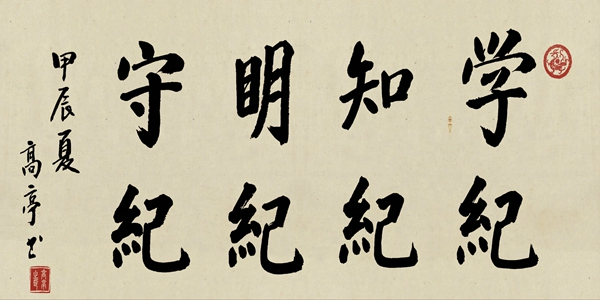 学紀
知紀
明紀
守紀
甲辰夏
高亭书